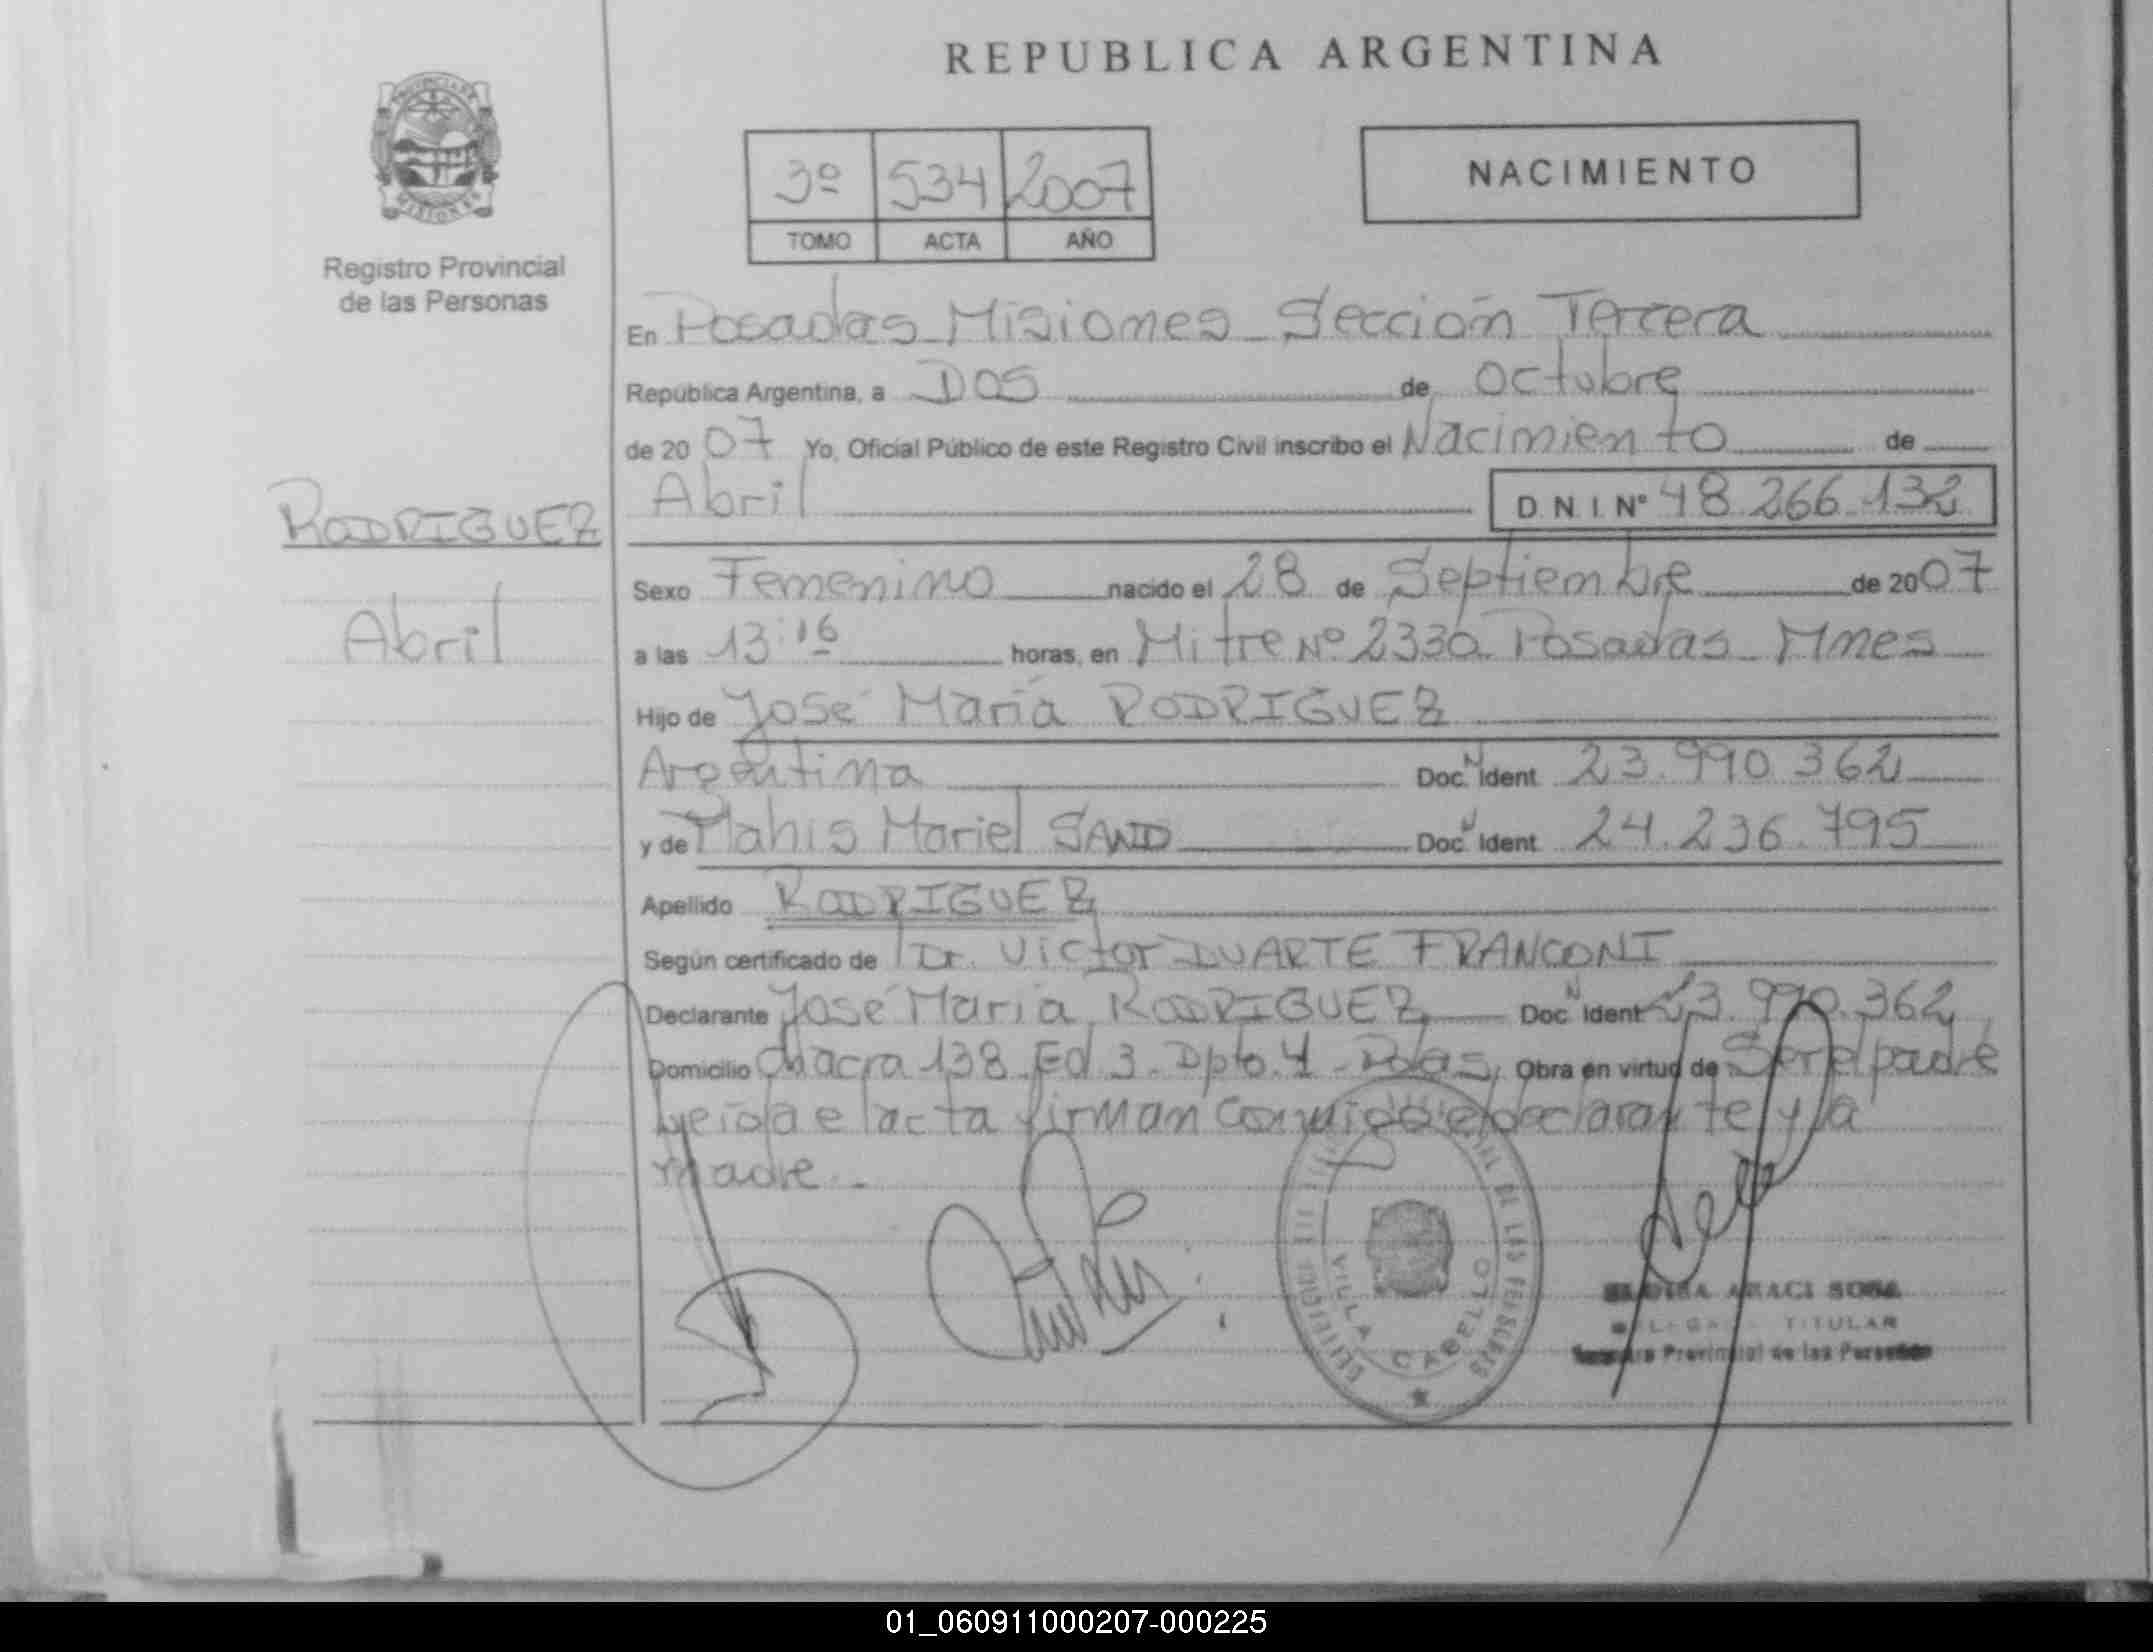 REPUBLICA ARGENTINA
PROVINCIA DE
MISIONES
Registro Provincial
de las Personas
3º 534 2007
TOMO ACTA AÑO
NACIMIENTO
En Posadas Misiones Sección Tercera
República Argentina, a Dos de Octubre
de 2007 Yo, Oficial Público de este Registro Civil inscribo el Nacimiento de
Abril D.N.I. Nº 48.266.132
RODRIGUEZ
Abril
Sexo Femenino nacido el 28 de Septiembre de 2007
a las 13:16 horas, en Mitre Nº 2330 Posadas Mnes
Hijo de José María RODRIGUEZ
Argentina Doc. N Ident 23.990.362
y de Mahis Mariel SAND Doc. N Ident 24.236.795
Apellido RODRIGUEZ
Según certificado de Dr. Victor DUARTE FRANCONI
Declarante José María RODRIGUEZ Doc. N Ident 23.990.362
Domicilio Chacra 138 Ed 3. Dpto. 4 - Pdas, Obra en virtud de Ser el padre
Leída el acta firman conmigo el declarante y la
madre.-
VILLA CABELLO
DE LAS PERSONAS
ARACI SOSA
TITULAR
Provincial de las Personas
01_060911000207-000225